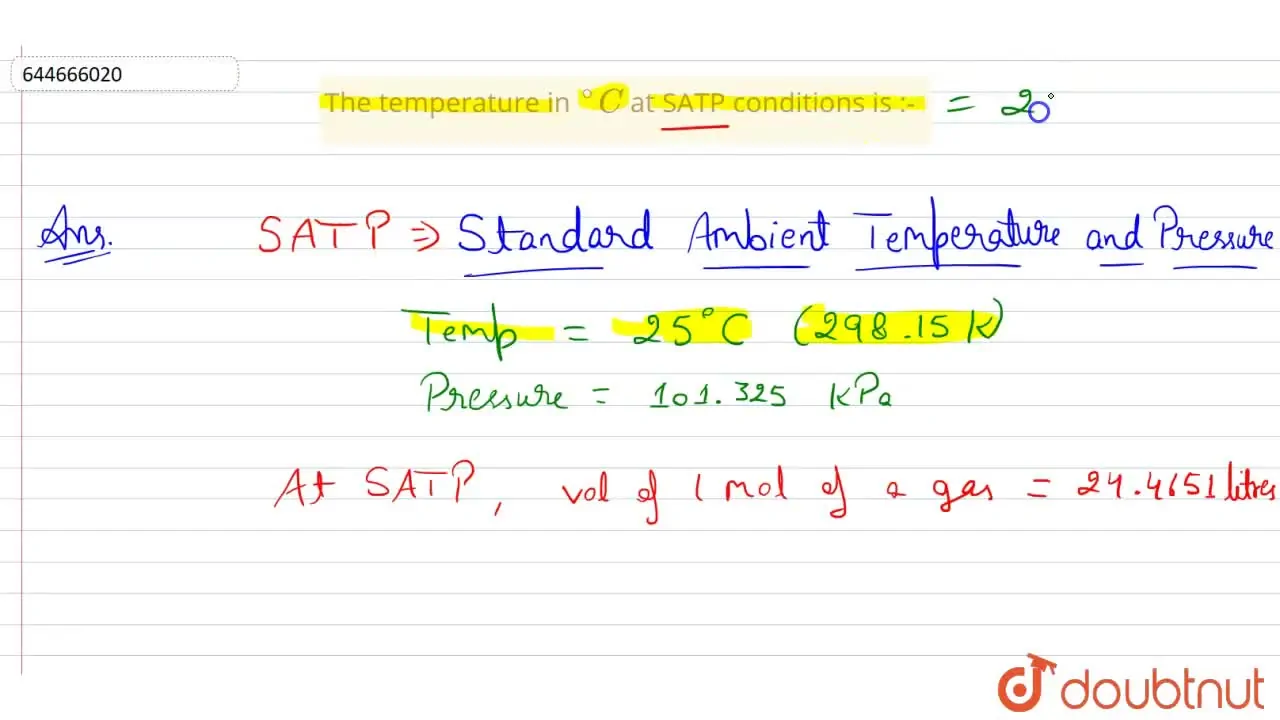 644666020
The temperature in °C at SATP conditions is :- = 2
Ans. SATP ⇒ Standard Ambient Temperature and Pressure
Temp = 25°C (298.15 K)
Pressure = 101.325 kPa
At SATP, vol of 1 mol of a gas = 24.4651 litres
doubtnut